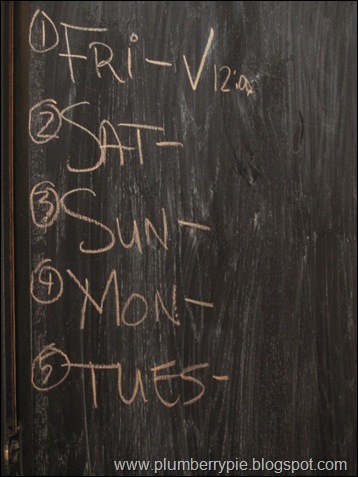 ① FRI - V
② SAT -
③ SUN -
④ MON -
⑤ TUES -
www.plumberrypie.blogspot.com